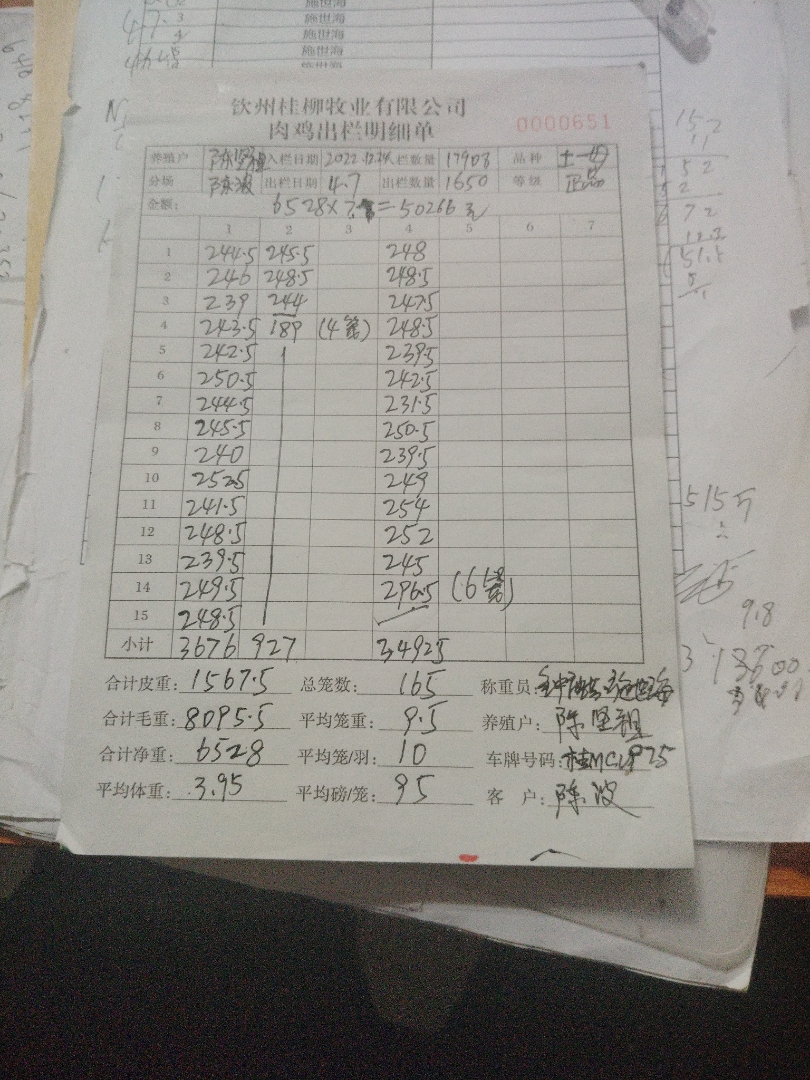 施世海
施世海
施世海
施世海
钦州桂柳牧业有限公司
肉鸡出栏明细单 0000651
养殖户 陈坚祖 入栏日期 2022.12.24 入栏数量 17908 品种 土一
分场 陈波 出栏日期 4.7 出栏数量 1650 等级 正品
金额: 6528×7. =50266元
1 2 3 4 5 6 7
1 244.5 245.5 248
2 246 248.5 248.5
3 239 244 247.5
4 243.5 189 (4笼) 248.5
5 242.5 239.5
6 250.5 242.5
7 244.5 231.5
8 245.5 250.5
9 240 239.5
10 252.5 249
11 241.5 254
12 248.5 252
13 239.5 245
14 249.5 296.5 (6笼)
15 248.5
小计 3676 927 3492.5
合计皮重: 1567.5 总笼数: 165 称重员:
合计毛重: 8095.5 平均笼重: 9.5 养殖户: 陈坚祖
合计净重: 6528 平均笼/羽: 10 车牌号码:
平均体重: 3.95 平均磅/笼: 95 客 户: 陈波
152
11
152
72
5155
9.8